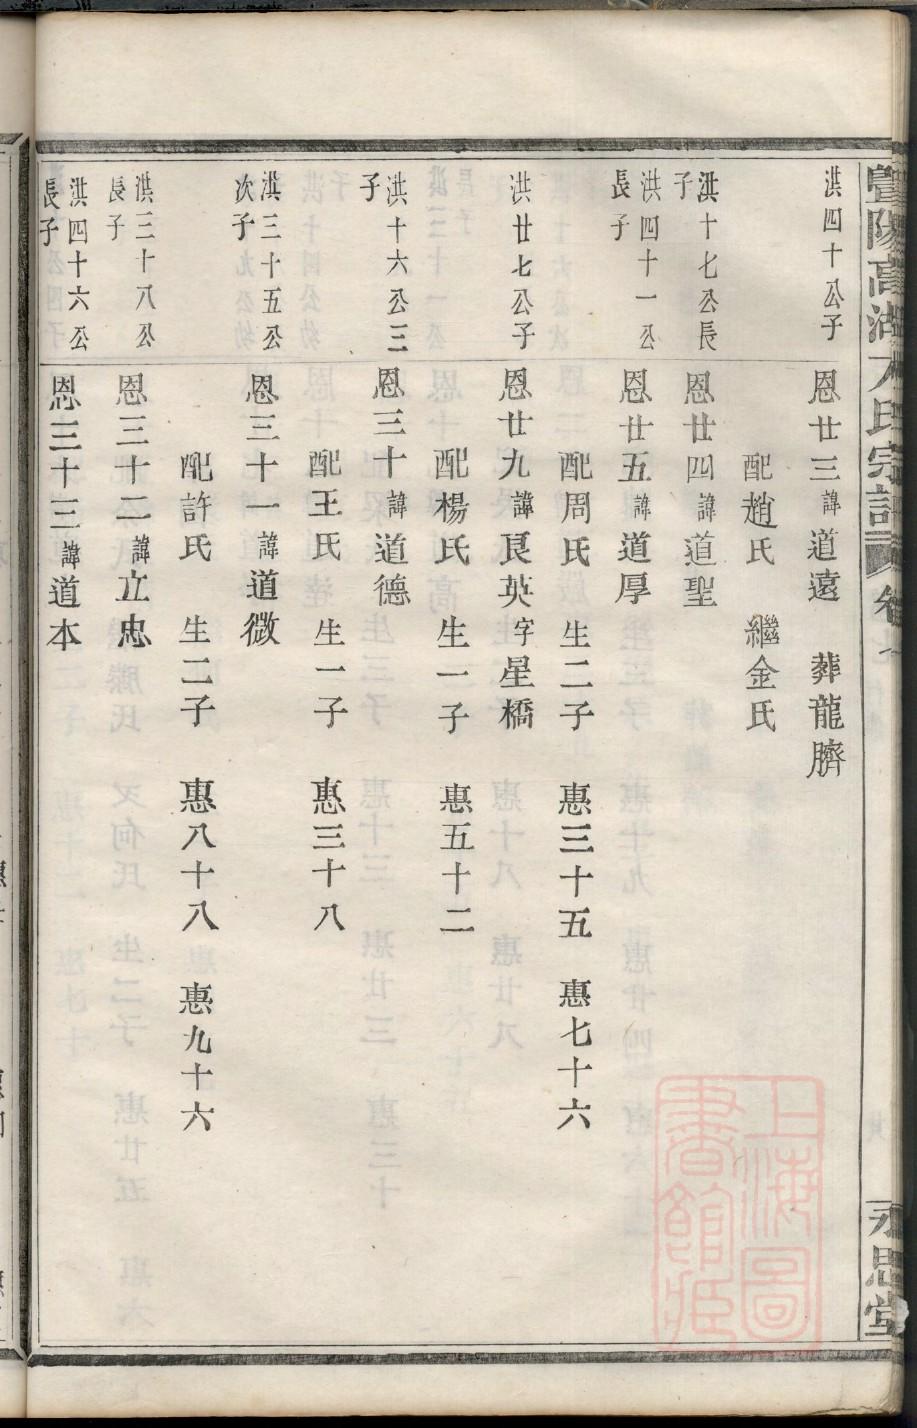 洪四十公子
恩廿三諱道遠 葬龍臍
配趙氏 繼金氏
洪十七公長子
恩廿四諱道聖
洪四十一公長子
恩廿五諱道厚
配周氏 生二子 惠三十五 惠七十六
洪廿七公子
恩廿九諱良英字星橋
配楊氏 生一子 惠五十二
洪十六公三子
恩三十諱道德
配王氏 生一子 惠三十八
洪三十五公次子
恩三十一諱道微
配許氏 生二子 惠八十八 惠九十六
洪三十八公長子
恩三十二諱立忠
洪四十六公長子
恩三十三諱道本
永思堂
上海圖書館藏